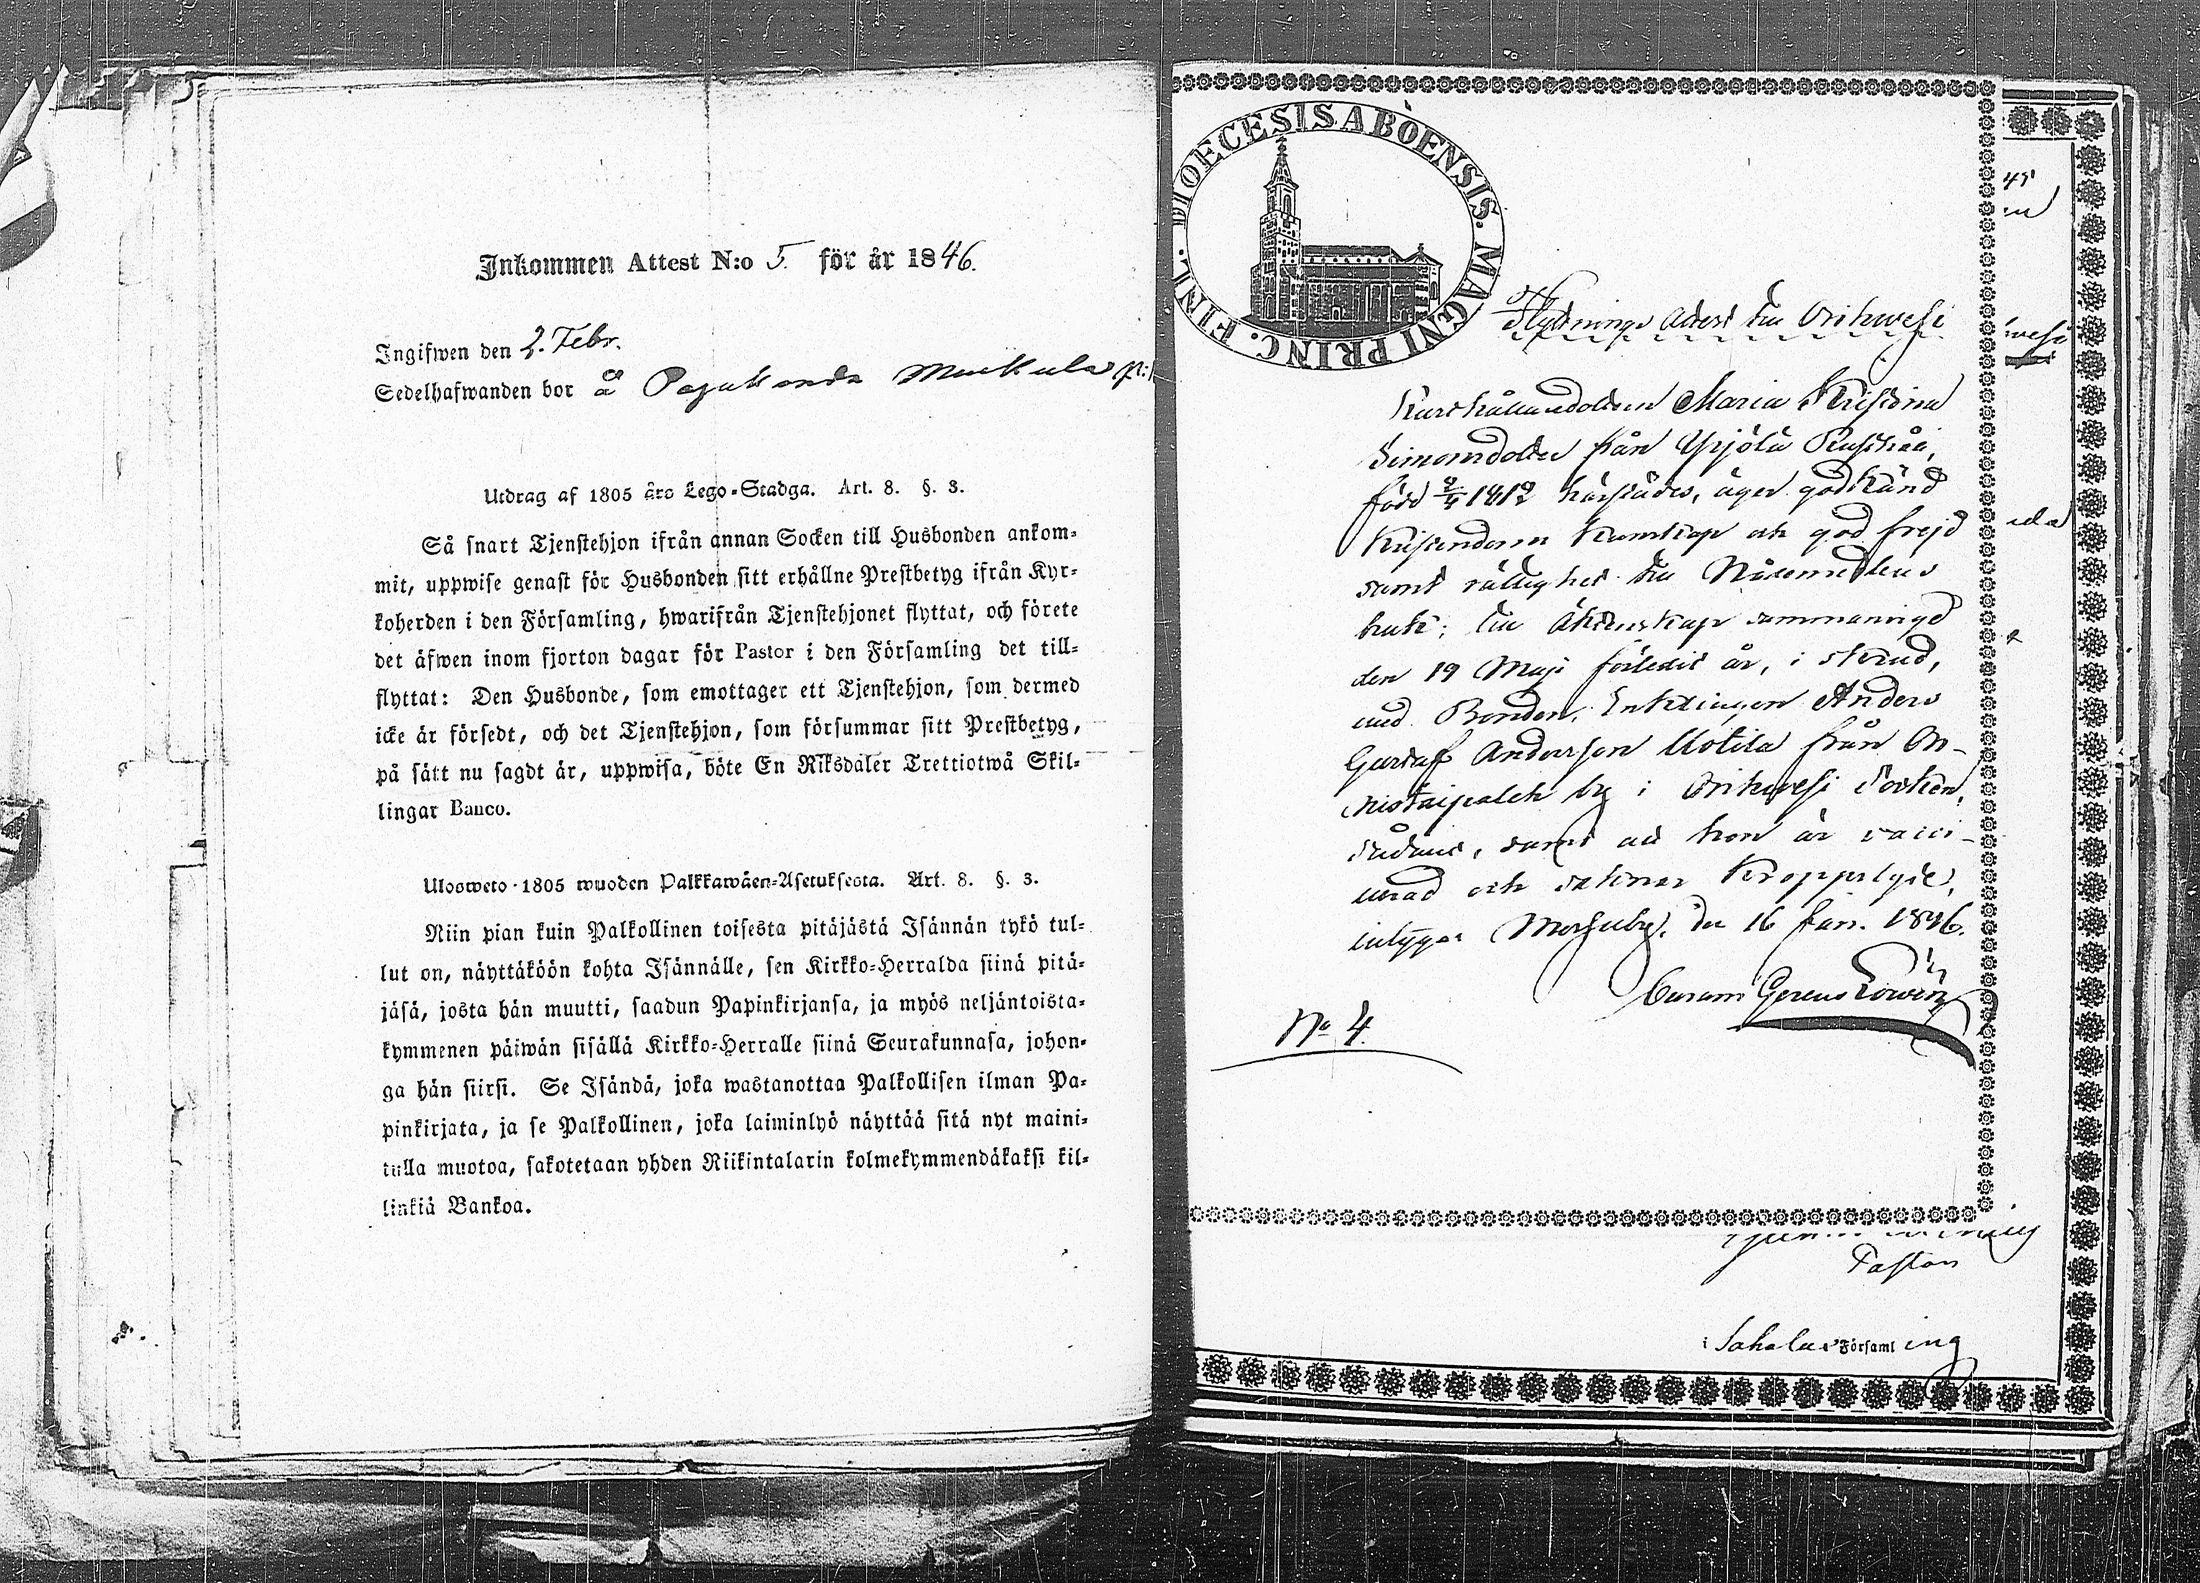 Inkommen Attest N:o 5. för år 1846.
Ingifwen den 2. Febr.
Sedelhafwanden bor å
Utdrag af 1805 års Lego-Stadga. Art. 8. §. 3.
Så snart Tjenstehjon ifrån annan Socken till Husbonden ankom-
mit, uppwise genast för Husbonden sitt erhållne Prestbetyg ifrån Kyr-
koherden i den Församling, hwarifrån Tjenstehjonet flyttat, och förete
det äfwen inom fjorton dagar för Pastor i den Församling det till-
flyttat: Den Husbonde, som emottager ett Tjenstehjon, som dermed
icke är försedt, och det Tjenstehjon, som försummar sitt Prestbetyg,
på sätt nu sagdt är, uppwisa, böte En Riksdaler Trettiotwå Skil-
lingar Banco.
Ulosweto 1805 wuoden Palkkawäen-Asetuksesta. Art. 8. §. 3.
Niin pian kuin Palkollinen toisesta pitäjästä Isännän tykö tul-
lut on, näyttäköön kohta Isännälle, sen Kirkko-Herralda siinä pitä-
jäsä, josta hän muutti, saadun Papinkirjansa, ja myös neljäntoista-
kymmenen päiwän sisällä Kirkko-Herralle siinä Seurakunnasa, johon-
ga hän siirsi. Se Isändä, joka wastanottaa Palkollisen ilman Pa-
pinkirjata, ja se Palkollinen, joka laiminlyö näyttää sitä nyt maini-
tulla muotoa, sakotetaan yhden Riikintalarin kolmekymmendäkaksi kil-
linkiä Bankoa.
DIOECESIS ABOENSIS. MAGNI PRINC. FINL.
Flyttnings Attest till Orihwesi
Maria Kristina
Simonsdotter från Yrjölä
född 1812 härstädes, äger godkänd
Kristendoms kunskap och god frejd
samt rättighet till Nåremedlens
bruk; till Äktenskap sammanvigd
den 19 Maji förledit år, i
med Bonden, Enklingen Anders
Gustaf Andersson Kötilä från On-
nistaipaleh by i Orihwesi Socken,
samt att hon är vacci-
nerad och saknar kroppslyte,
intygar den 16 Jan. 1846.
No 4.
Pastor
i Sahalax Församling